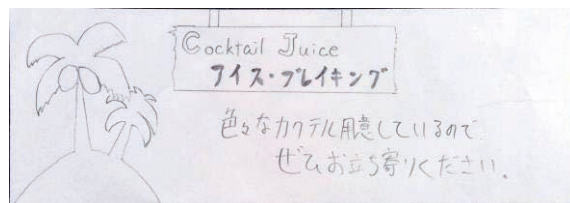 Cocktail Juice
アイス・ブレイキング
色々なカクテル用意しているので
ぜひお立ち寄りください。